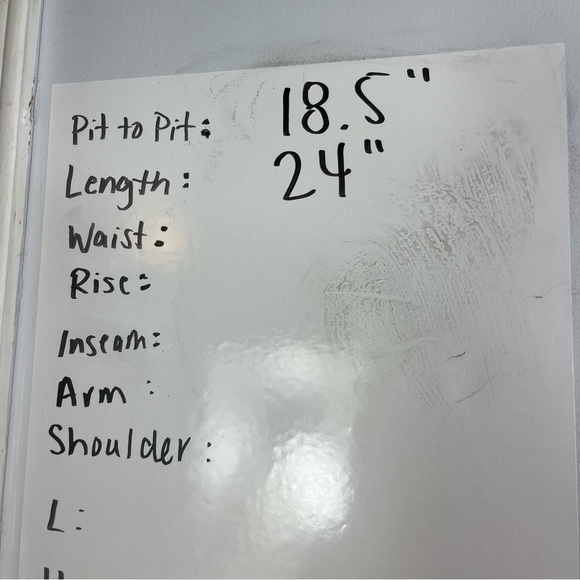 Pit to Pit: 18.5"
Length: 24"
Waist:
Rise:
Inseam:
Arm:
Shoulder:
L: